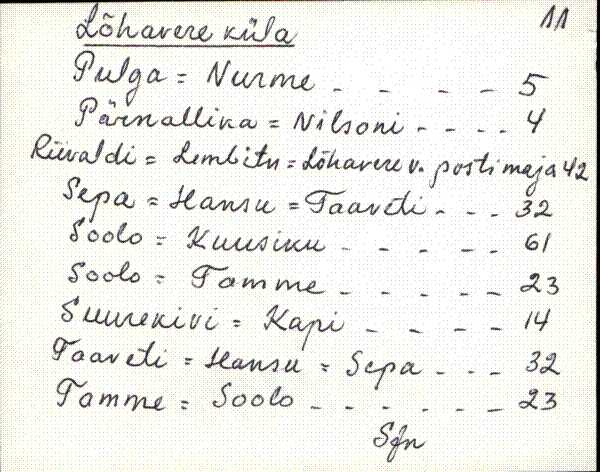 11
Lõhavere küla
Pulga = Nurme - - - - 5
Pärnallika = Nilsoni - - - - 4
Riivaldi = Lembitu = Lõhavere v. postimaja 42
Sepa = Hansu = Taaveti - - - 32
Soolo = Kuusiku - - - - - 61
Soolo = Tamme - - - - - 23
Suurekivi = Kapi - - - - 14
Taaveti = Hansu = Sepa - - - 32
Tamme = Soolo - - - - - - 23